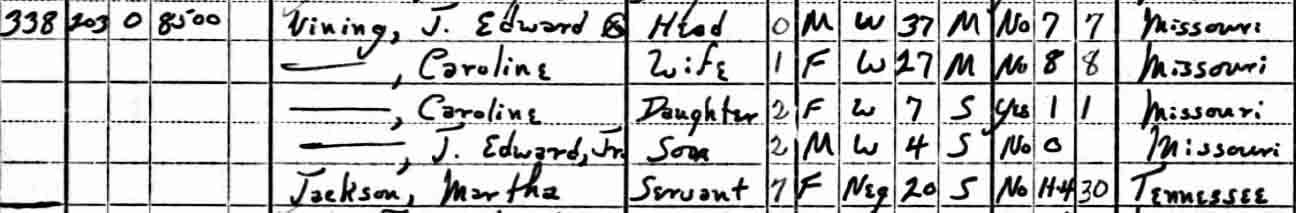 338 203 O 8500 Vining, J. Edward ⓧ Head 0 M W 37 M No 7 7 Missouri
——, Caroline Wife 1 F W 27 M No 8 8 Missouri
——, Caroline Daughter 2 F W 7 S Yes 1 1 Missouri
——, J. Edward, Jr. Son 2 M W 4 S No 0 Missouri
Jackson, Martha Servant 7 F Neg 20 S No H-4 30 Tennessee